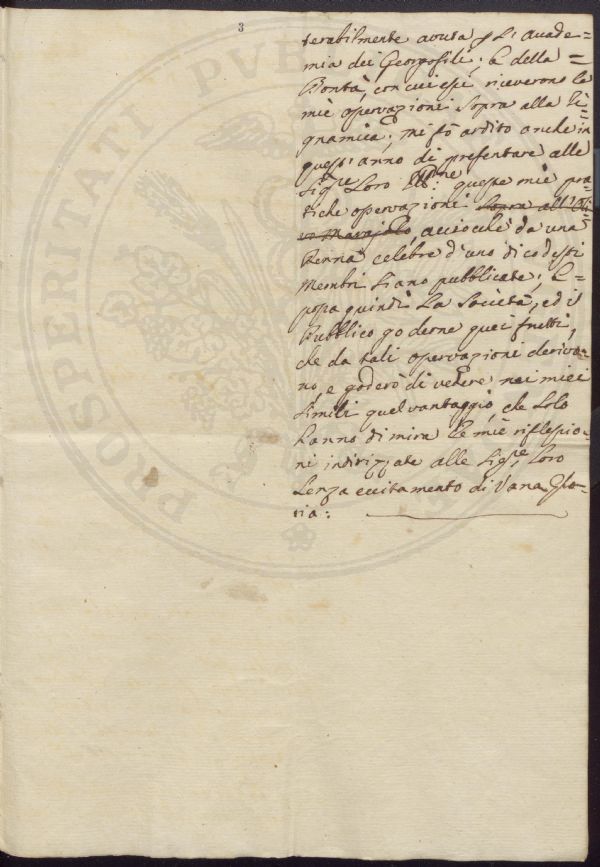 3
terabilmente avuta p l'Accade=
mia dei Georgofili; e della =
Bontà, con cui essi riceverono le
mie osservazioni sopra alla Li=
gnamica; mi fò ardito anche in
quest'anno di presentare alle
Sig.re Loro Ill.me: queste mie pra=
tiche osservazioni sopra all'Uli=
vo Marajolo, acciochè da una
Penna celebre d'uno di codesti
Membri siano pubblicate; E=
possa quindi La Società, ed il
Pubblico goderne quei frutti,
che da tali osservazioni deriva=
no, e goderò di vedere nei miei
simili quel vantaggio, che solo
hanno di mira le mie riflessio=
ni indirizzate alle Sig.re Loro
senza eccitamento di Vana Glo=
ria:
PROSPERITATI PVB